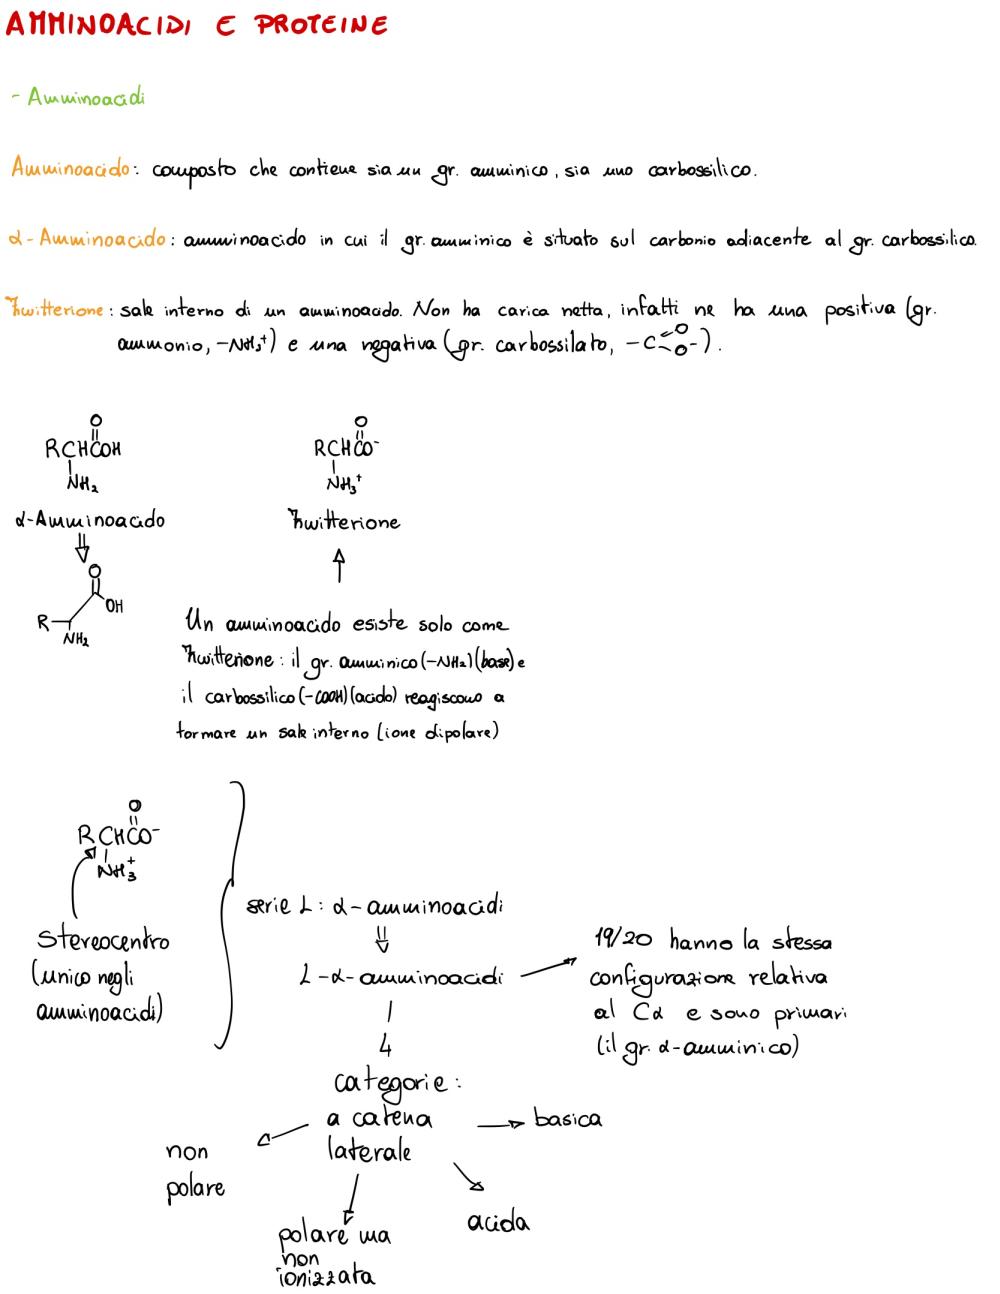 AMMINOACIDI E PROTEINE
- Amminoacidi
Amminoacido: composto che contiene sia un gr. amminico, sia uno carbossilico.
α-Amminoacido: amminoacido in cui il gr. amminico è situato sul carbonio adiacente al gr. carbossilico.
Zwitterione: sale interno di un amminoacido. Non ha carica netta, infatti ne ha una positiva (gr.
ammonio, -NH₃⁺) e una negativa (gr. carbossilato, -C O O-).
O
RCHCOH
NH₂
α-Amminoacido
O
OH
R
NH₂
O
RCHCO⁻
NH₃⁺
Zwitterione
Un amminoacido esiste solo come
Zwitterione: il gr. amminico (-NH₂) (base) e
il carbossilico (-COOH) (acido) reagiscono a
formare un sale interno (ione dipolare)
O
RCHCO⁻
NH₃⁺
stereocentro
(unico negli
amminoacidi)
serie L: α-amminoacidi
L-α-amminoacidi
19/20 hanno la stessa
configurazione relativa
al Cα e sono primari
(il gr. α-amminico)
4
categorie:
a catena
laterale
basica
non
polare
acida
polare ma
non
ionizzata